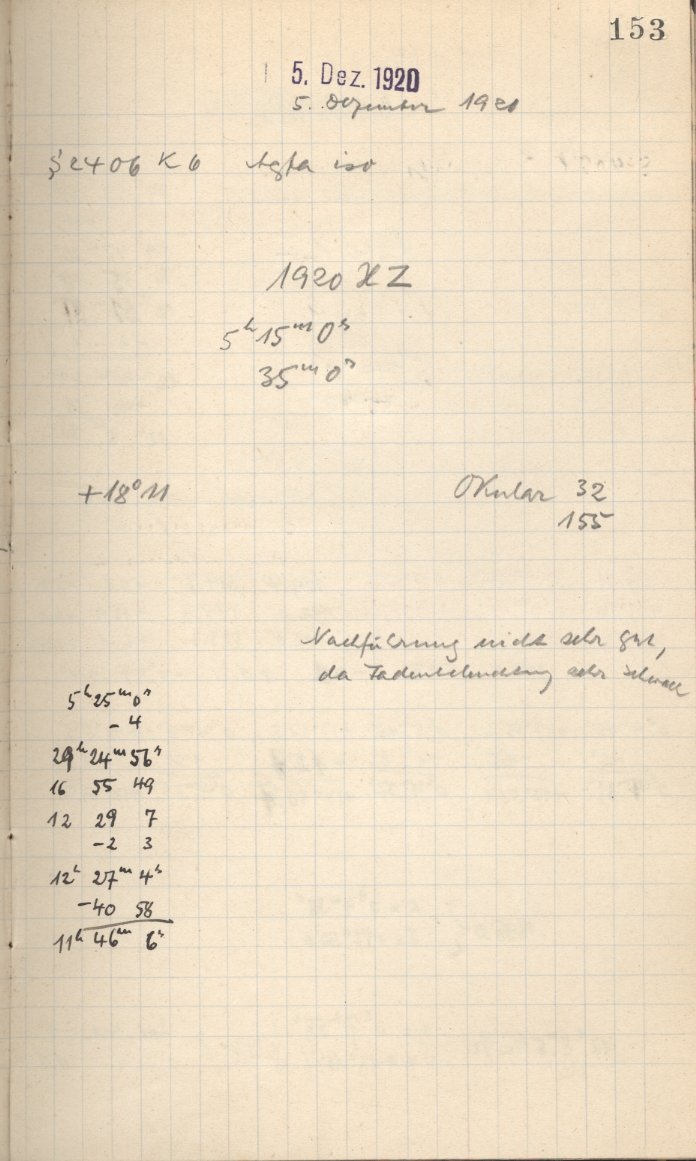 153
5. Dez. 1920
5. Dezember 1920
2406 K 6 Agfa iso
1920 HZ
5ʰ 15ᵐ 0ˢ
35ᵐ 0ˢ
+18° 11
Okular 32
155
Nachführung nicht sehr gut,
da Fadenbeleuchtung sehr schwach
5ʰ 25ᵐ 0ˢ
- 4
29ʰ 24ᵐ 56ˢ
16 55 49
12 29 7
-2 3
12ʰ 27ᵐ 4ˢ
-40 58
11ʰ 46ᵐ 6ˢ